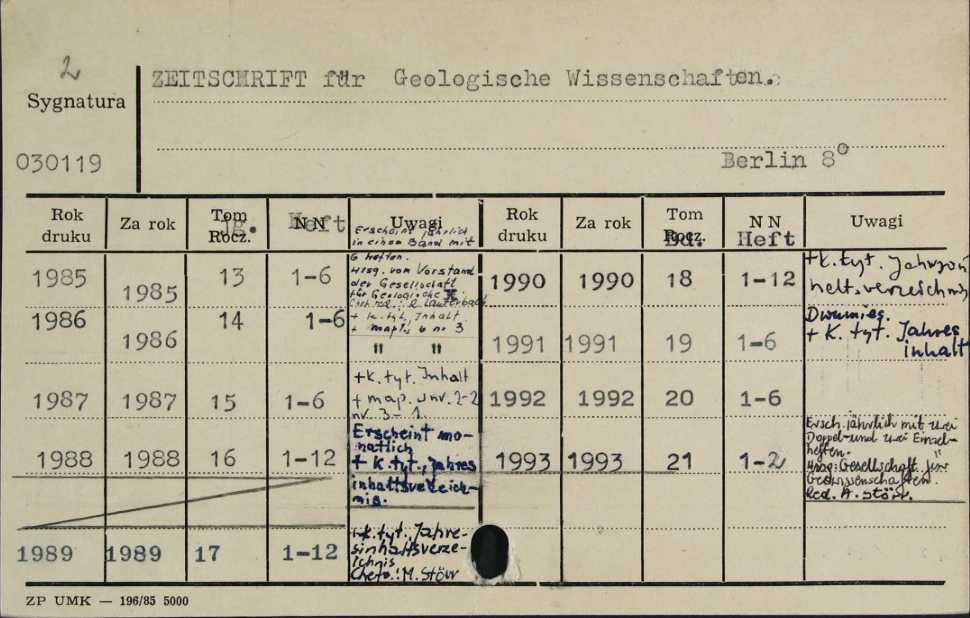 2
ZEITSCHRIFT für Geologische Wissenschaften.
Sygnatura
030119
Berlin 8°
Rok druku
Za rok
Tom Rocz. Jg.
N N Heft
Uwagi
Rok druku
Za rok
Tom Rocz.
N N Heft
Uwagi
1985 1985 13 1-6
Erscheint jährlich
in einem Band mit
6 Heften.
Hrsg. vom Vorstand
der Gesellschaft
für Geologische
+ k. tyt, Inhalt
+ map. nr 3
1986 1986 14 1-6
" "
1987 1987 15 1-6
+k. tyt. Inhalt
+ map. nr. 2-2
nr. 3-1.
1988 1988 16 1-12
Erscheint mo-
natlich
+ k. tyt., Jahres
inhaltsverzeich-
nis.
1989 1989 17 1-12
+k. tyt. Jahre-
sinhaltsverze-
ichnis
Chefr.: M. Störr
1990 1990 18 1-12
+k. tyt. Jahresin
haltsverzeichnis
1991 1991 19 1-6
Dwumies.
+ k. tyt. Jahres
inhalt
1992 1992 20 1-6
1993 1993 21 1-2
Ersch. jährlich mit zwei
Doppel-und zwei Einzel-
heften.
Hrsg: Gesellschaft für
Geowissenschaften.
Red. M. Störr.
ZP UMK — 196/85 5000